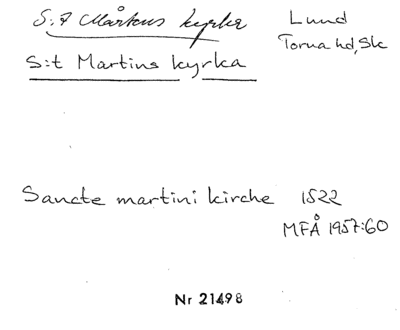 S:t Mårtens kyrka
Lund
Torna hd, Sk
S:t Martins kyrka
Sancte martini kirche 1522
MFÅ 1957:60
Nr 21498